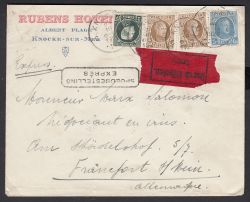 RUBENS HOTEL
ALBERT PLAGE
KNOCKE-SUR-MER
Exprès.
SPOEDBESTELLING
EXPRÈS
Monsieur Max Salomon
Négociant en vins
Am Städelshof 5/7
Francfort s/Mein
Allemagne